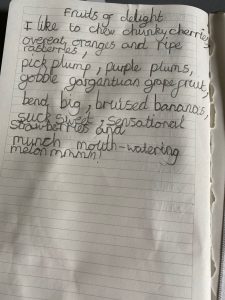 Fruits of delight
I like to chew chunky cherries,
overeat, oranges and ripe
rasberries,
pick plump, purple plums,
gobble gargantuan grapefruit,
bend big, bruised bananas,
suck sweet, sensational
strawberries and
munch mouth-watering
melon mmmm!